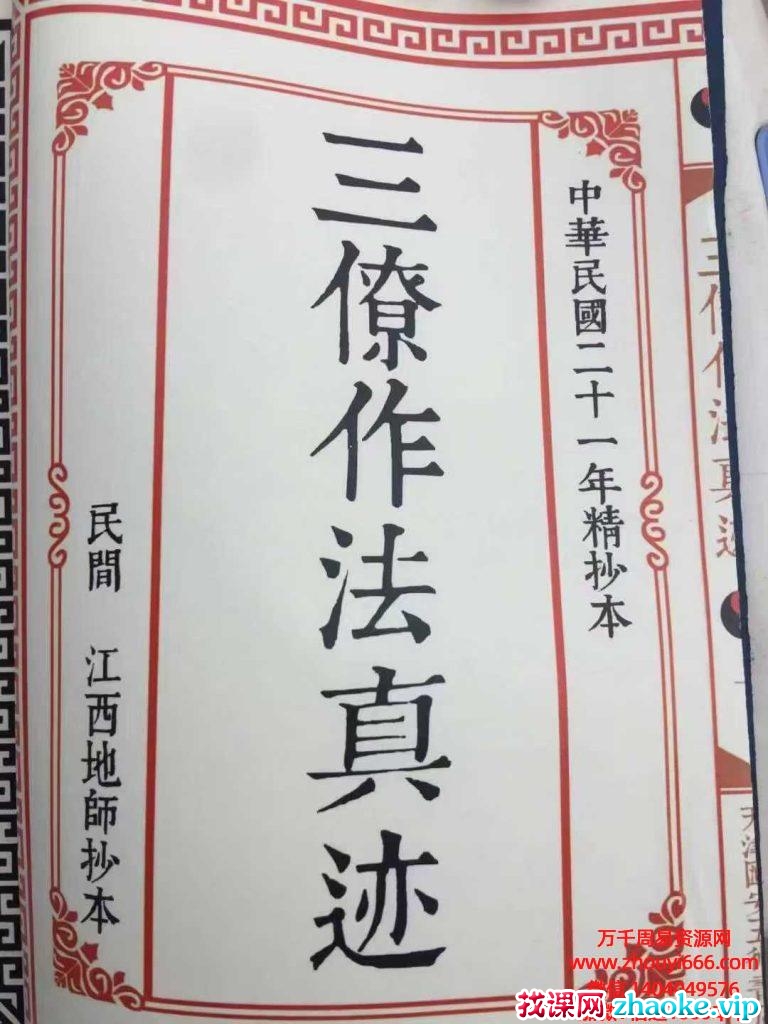 中華民國二十一年精抄本
三僚作法真迹
民間 江西地師抄本
三僚作法真迹
万千周易资源网
www.zhouyi666.com
找课网zhaoke.vip